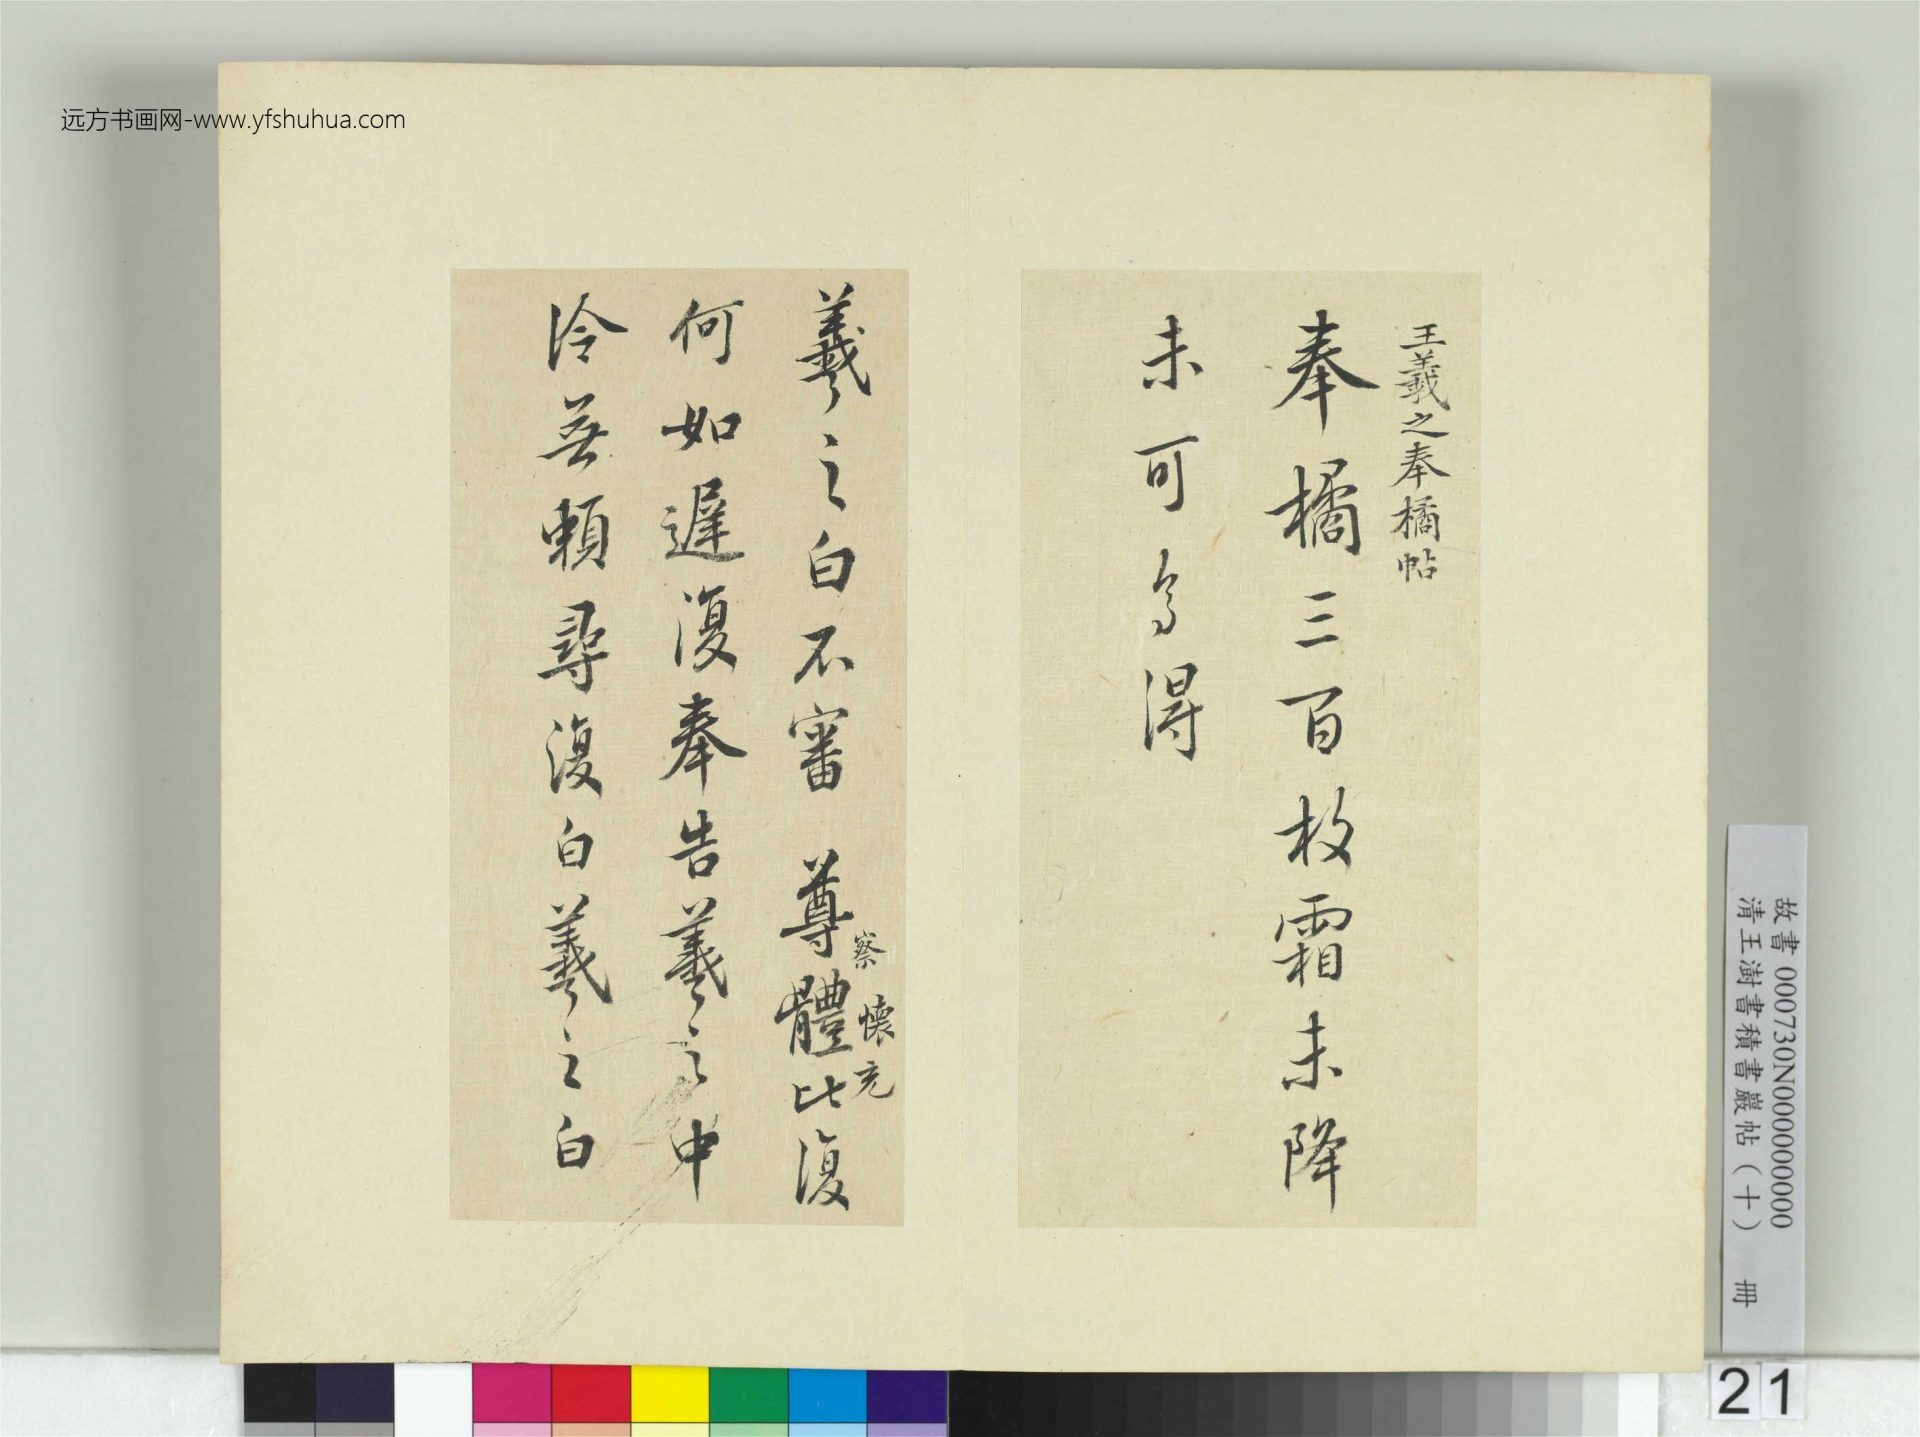 远方书画网-www.yfshuhua.com
王羲之奉橘帖
奉橘三百枚霜未降
未可多得
羲之白不審 尊體比復
察懷充
何如遲復奉告羲之中
冷無賴尋復白羲之白
故書 000730N000000000
清王澍書積書巖帖(十) 冊
21